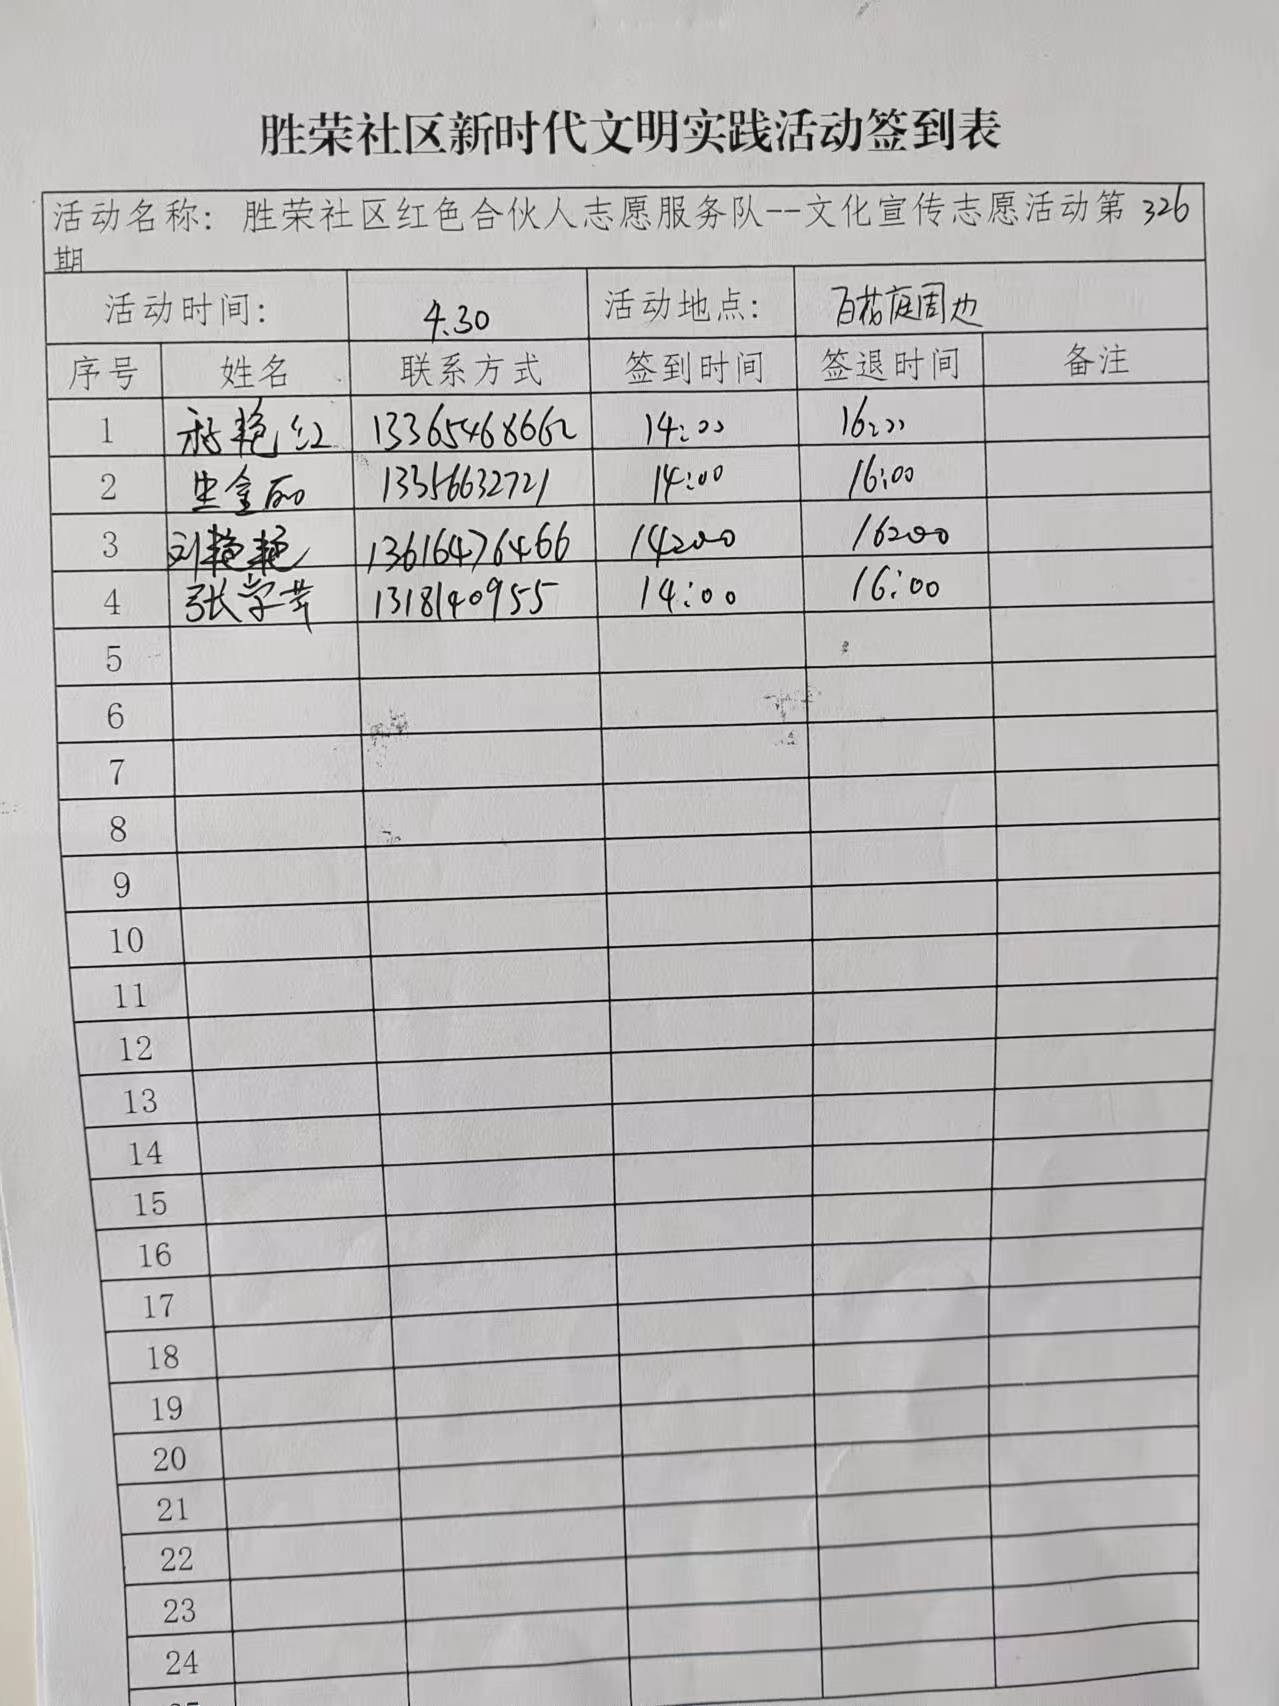 胜荣社区新时代文明实践活动签到表
活动名称: 胜荣社区红色合伙人志愿服务队--文化宣传志愿活动第 326
期
活动时间: 4.30 活动地点: 百花庭周边
序号 姓名 联系方式 签到时间 签退时间 备注
1 艳红 13365468662 14:00 16:00
2 生金丽 13356632721 14:00 16:00
3 刘艳艳 13616476466 14:00 16:00
4 张学苹 1318140955 14:00 16:00
5
6
7
8
9
10
11
12
13
14
15
16
17
18
19
20
21
22
23
24